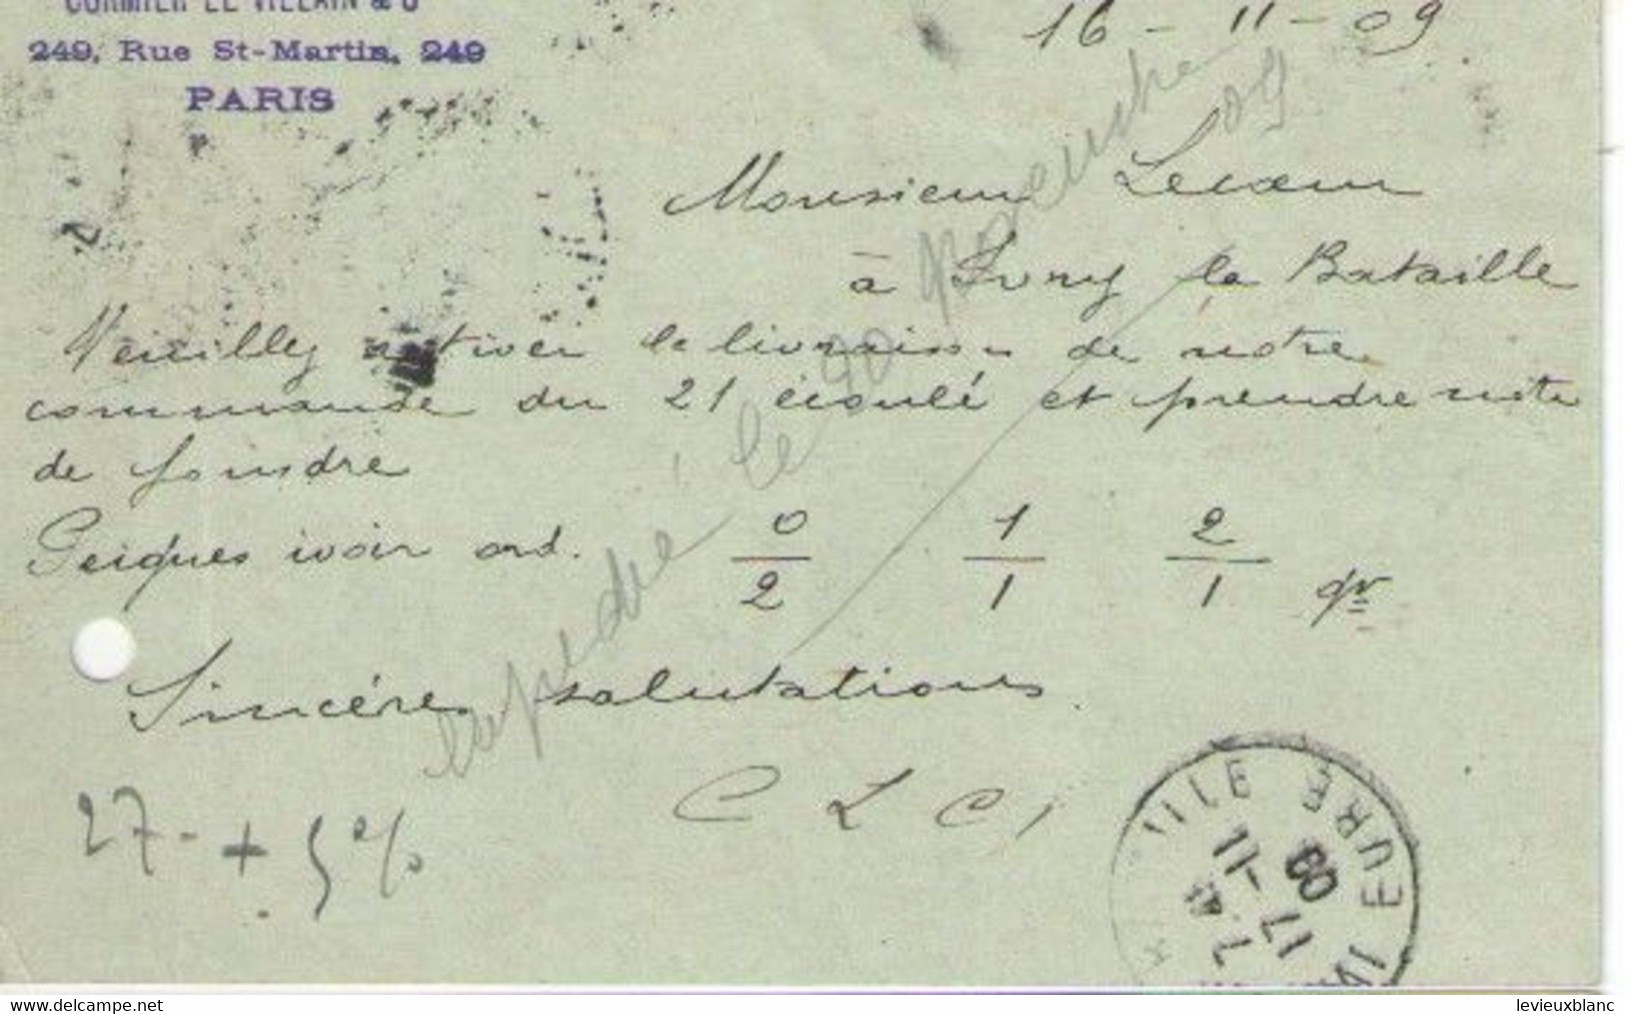 CORMIER LE VILLAIN & C
249, Rue St-Martin, 249
PARIS
16 - 11 - 09
Monsieur Lecœur
à Ivry la Bataille
Veuillez activer la livraison de notre
commande du 21 écoulé et prendre note
de joindre
Peignes ivoir ord. 0/2 1/1 2/1 gr
Sincères salutations
C L C
expédié le 20 9bre 09
27 - + 5 %
EURE
17 - 11
09
levieuxblanc
www.delcampe.net